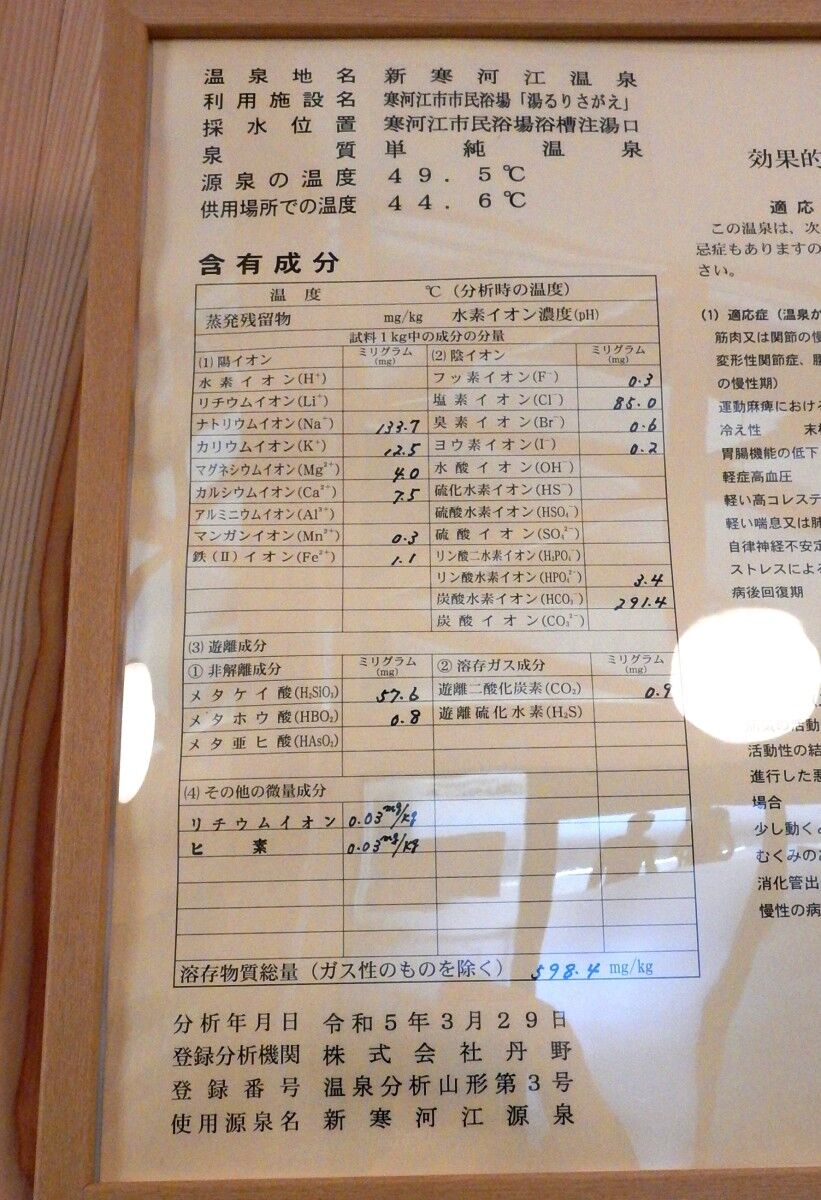 温泉地名 新寒河江温泉
利用施設名 寒河江市市民浴場「湯るりさがえ」
採水位置 寒河江市民浴場浴槽注湯口
泉質 単純温泉
源泉の温度 49.5℃
供用場所での温度 44.6℃
含有成分
温度 ℃(分析時の温度)
蒸発残留物 mg/kg 水素イオン濃度(pH)
試料1kg中の成分の分量
(1)陽イオン ミリグラム(mg) (2)陰イオン ミリグラム(mg)
水素イオン(H⁺) フッ素イオン(F⁻) 0.3
リチウムイオン(Li⁺) 塩素イオン(Cl⁻) 85.0
ナトリウムイオン(Na⁺) 133.7 臭素イオン(Br⁻) 0.6
カリウムイオン(K⁺) 12.5 ヨウ素イオン(I⁻) 0.2
マグネシウムイオン(Mg²⁺) 4.0 水酸イオン(OH⁻)
カルシウムイオン(Ca²⁺) 7.5 硫化水素イオン(HS⁻)
アルミニウムイオン(Al³⁺) 硫酸水素イオン(HSO₄⁻)
マンガンイオン(Mn²⁺) 0.3 硫酸イオン(SO₄²⁻)
鉄(II)イオン(Fe²⁺) 1.1 リン酸二水素イオン(H₂PO₄⁻)
リン酸水素イオン(HPO₄²⁻) 3.4
炭酸水素イオン(HCO₃⁻) 291.4
炭酸イオン(CO₃²⁻)
(3)遊離成分
①非解離成分 ミリグラム(mg) ②溶存ガス成分 ミリグラム(mg)
メタケイ酸(H₂SiO₃) 57.6 遊離二酸化炭素(CO₂) 0.9
メタホウ酸(HBO₂) 0.8 遊離硫化水素(H₂S)
メタ亜ヒ酸(HAsO₂)
(4)その他の微量成分
リチウムイオン 0.03mg/kg
ヒ素 0.03mg/kg
溶存物質総量(ガス性のものを除く) 598.4 mg/kg
分析年月日 令和5年3月29日
登録分析機関 株式会社丹野
登録番号 温泉分析山形第3号
使用源泉名 新寒河江源泉
効果的
適応
この温泉は、次
忌症もありますの
さい。
(1)適応症(温泉か
筋肉又は関節の慢
変形性関節症、腰
の慢性期)
運動麻痺における
冷え性 末梢
胃腸機能の低下
軽症高血圧
軽い高コレステ
軽い喘息又は肺
自律神経不安定
ストレスによる
病後回復期
活動性の結
進行した悪
場合
少し動くと
むくみのあ
消化管出
慢性の病